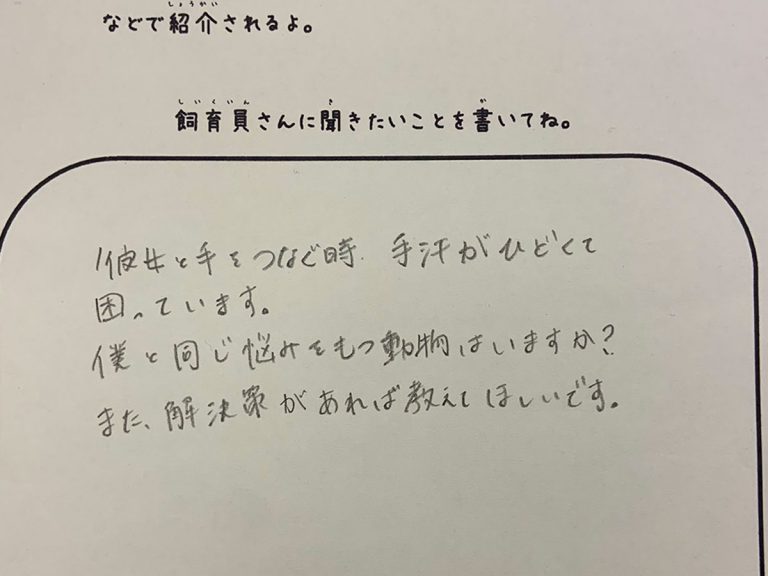 などで紹介されるよ。
飼育員さんに聞きたいことを書いてね。
彼女と手をつなぐ時 手汗がひどくて
困っています。
僕と同じ悩みをもつ動物はいますか?
また、解決策があれば教えてほしいです。